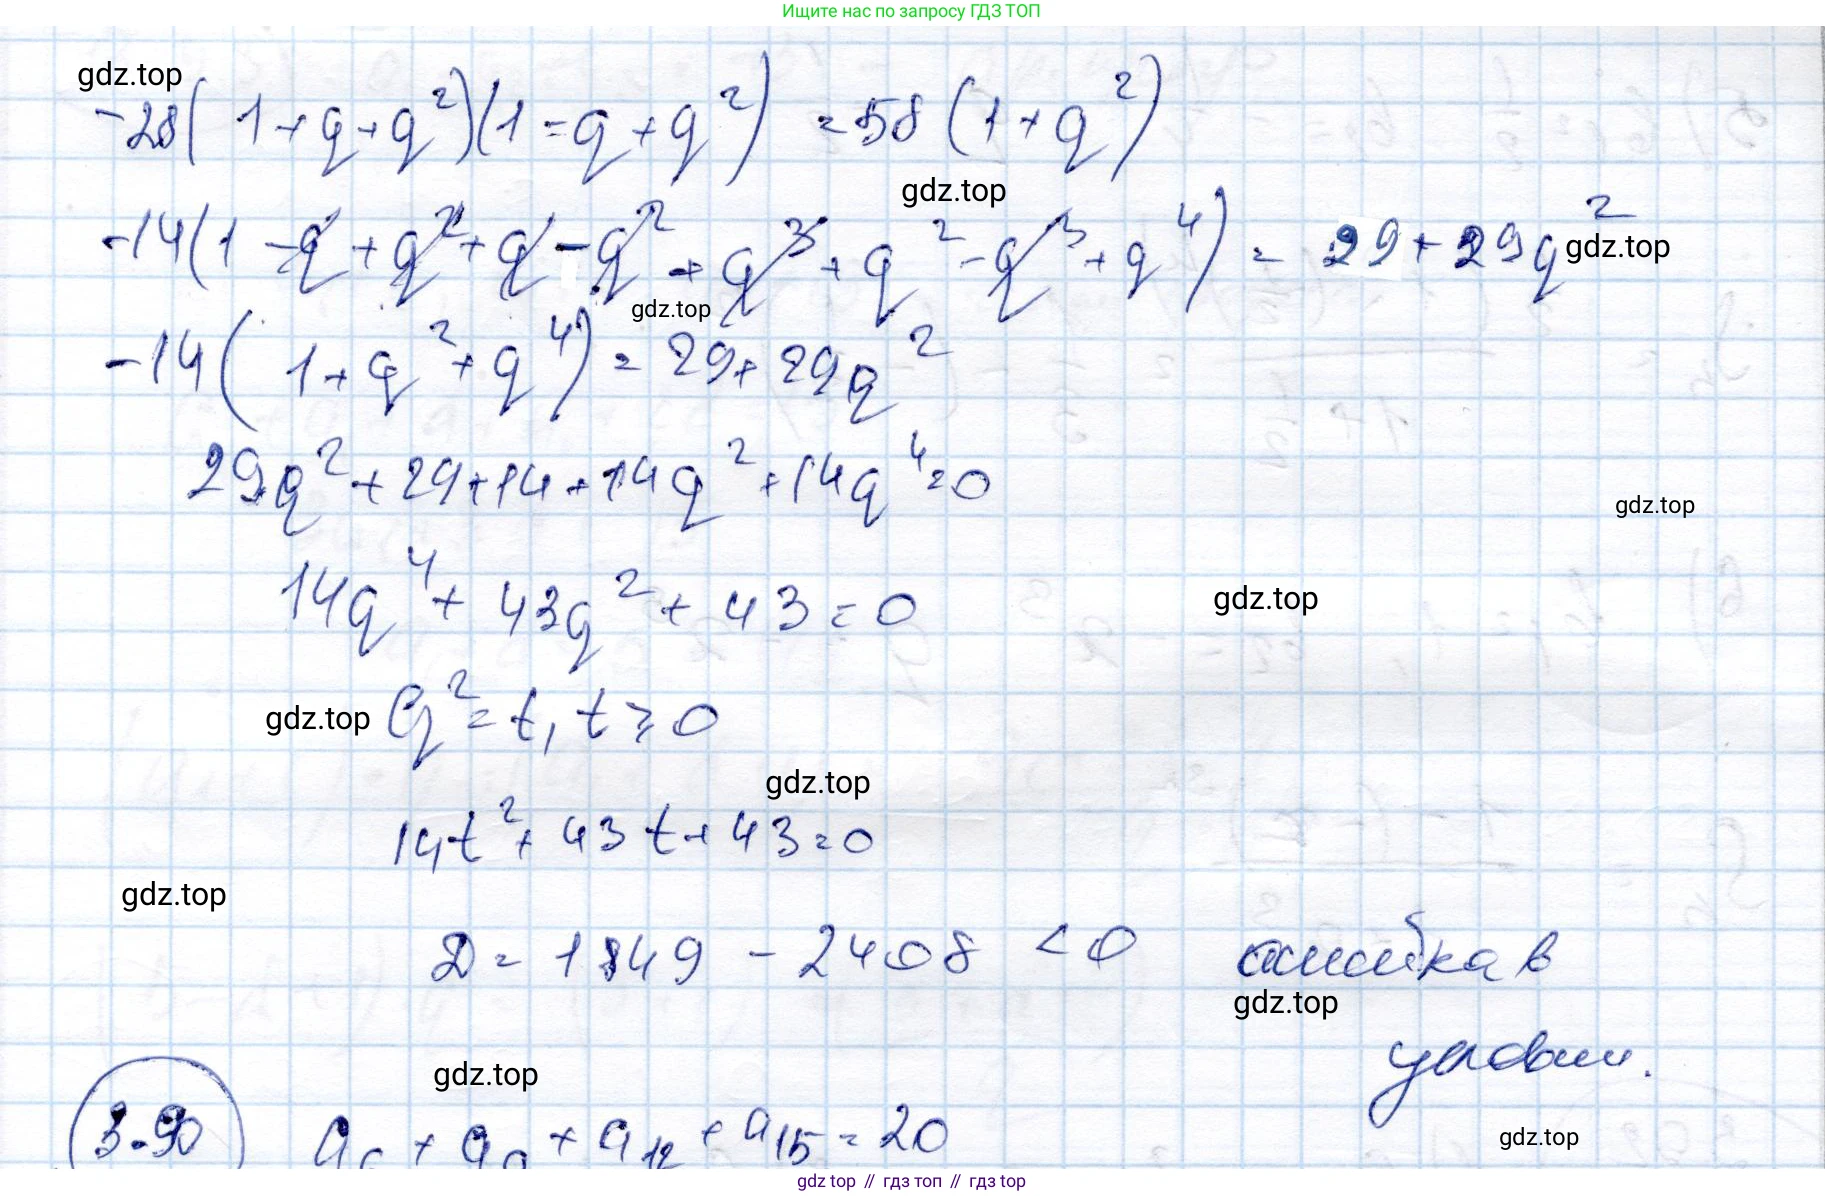 Ищите нас по запросу ГДЗ ТОП
gdz.top
-28(1+q+q²)(1=q+q²) = 58(1+q²)
gdz.top
-14(1-q+q²+q-q²+q³+q²-q³+q⁴) = 29+29q²
gdz.top
gdz.top
-14(1+q²+q⁴) = 29+29q²
29q²+29+14+14q²+14q⁴=0
gdz.top
14q⁴+43q²+43=0
gdz.top
gdz.top
q²=t, t⩾0
gdz.top
14t²+43t+43=0
gdz.top
D = 1849 - 2408 < 0 ошибка в
gdz.top
условии.
gdz.top
3-90 a₆+a₉+a₁₂+a₁₅=20
gdz.top
gdz top // гдз топ // гдз top